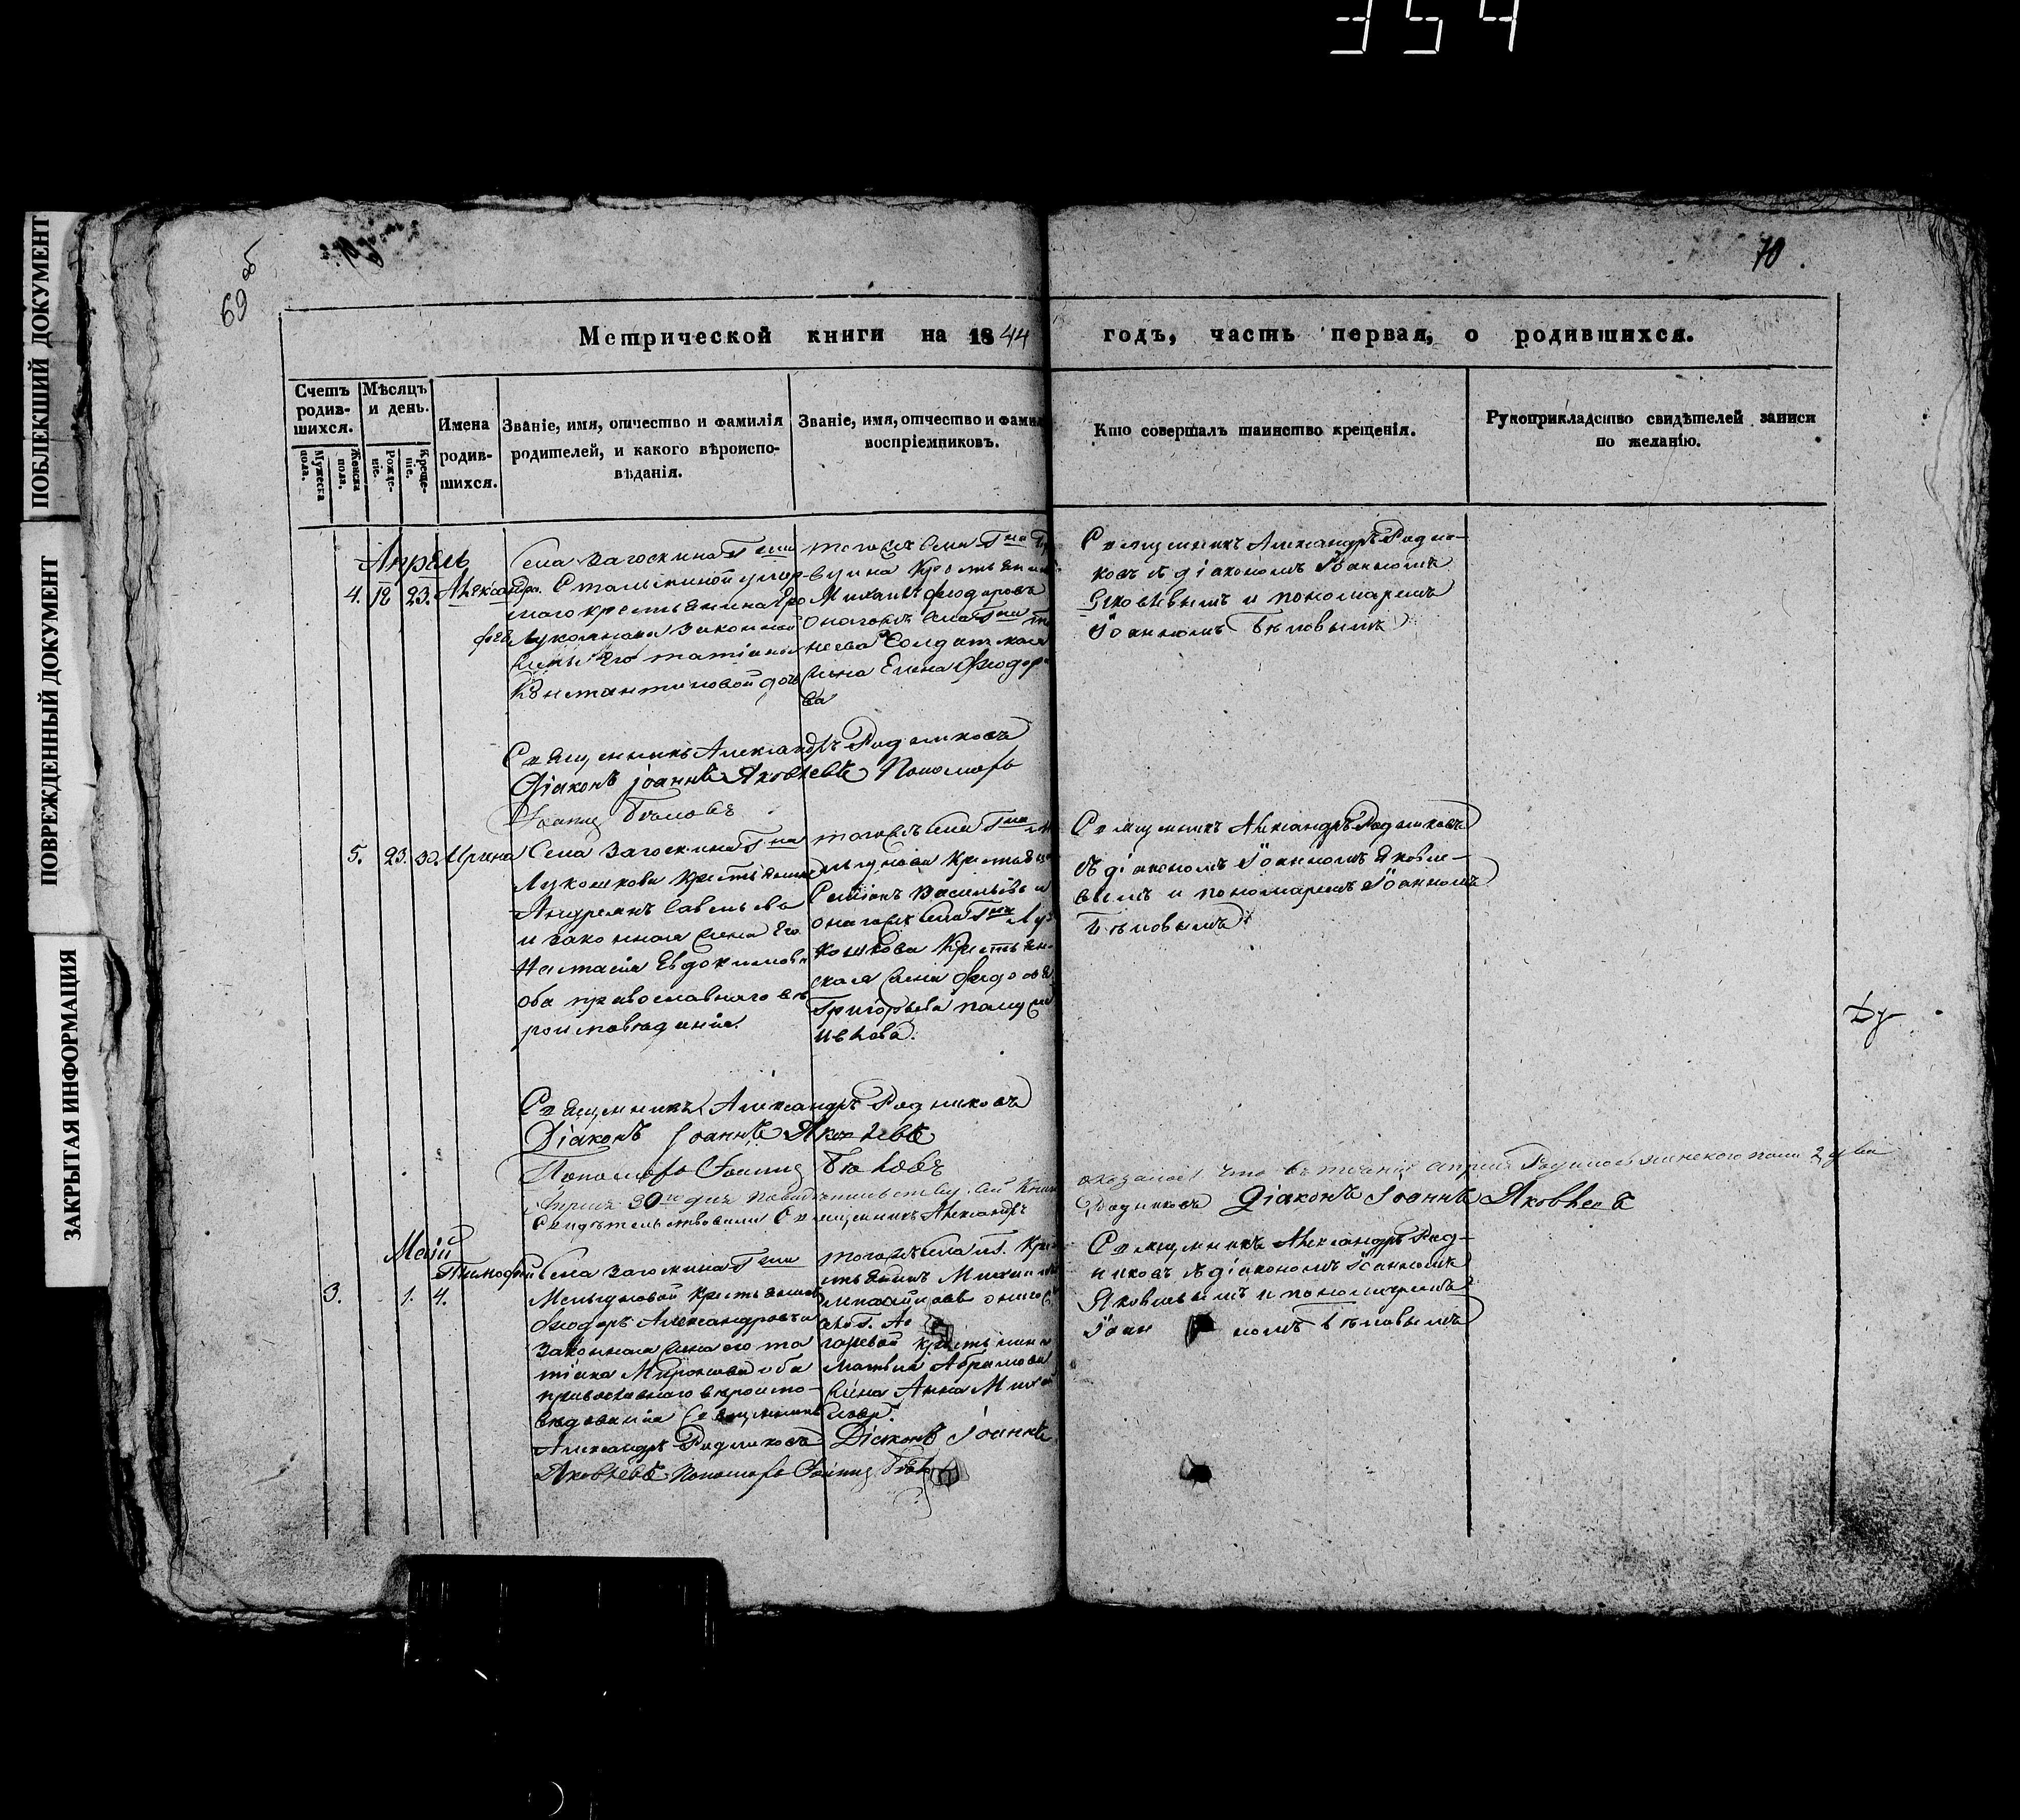 354
ПОБЛЕКШИЙ ДОКУМЕНТ
ПОВРЕЖДЕННЫЙ ДОКУМЕНТ
ЗАКРЫТАЯ ИНФОРМАЦИЯ
69 об
70
Метрической книги на 1844 годъ, часть первая, о родившихся.
Счетъ родив-шихся.
Мужеска пола.
Женска пола.
Мѣсяцъ и день.
Рожде-ніе.
Креще-ніе.
Имена родив-шихся.
Званіе, имя, отчество и фамилія
родителей, и какого вѣроиспо-
вѣданія.
Званіе, имя, отчество и фами
воспріемниковъ.
Кто совершалъ таинство крещенія.
Рукоприкладство свидѣтелей записи
по желанію.
Апрель
4. 18 23. Александра.
Села Загоскина Гжи
Стальпиной умер-
шаго крестьянина Еро
фея Лукоянова законной
жены его татіаны
Константиновой дочь
тогожъ села Гна
вщина крестьянинъ
Михаилъ Федоровъ
оногожъ села Гжи
неева Солдатская
жена Елена Федоро
ва
Священникъ Александръ Родни-
ковъ съ діакономъ Іоанномъ
Яковлевымъ и пономаремъ
Іоанномъ Бѣловымъ
Священникъ Александръ Родниковъ
Діаконъ Іоаннъ Яковлевъ Пономарь
Іоаннъ Бѣловъ
5. 23. 30. Ирина
Села Загоскина Гна
Лукошкова крестьянинъ
Андреянъ Савельевъ
и законная жена его
Настасія Евдокимова
оба православнаго вѣ
роисповѣданія.
тогожъ села Гна
крестьянинъ
Семіонъ Васильевъ и
оногожъ села Гна Лу
кошкова крестьян-
ская жена Федосья
Григорьева
Священникъ Александръ Родниковъ
съ діакономъ Іоанномъ Яковле-
вымъ и пономаремъ Іоанномъ
Бѣловымъ
Священникъ Александръ Родниковъ
Діаконъ Іоаннъ Яковлевъ
Пономарь Іоаннъ Бѣловъ
Апреля 30го дня по свидѣтельству сей книги оказалось что въ теченіе апреля родилось женского пола 2 два
Свидѣтельствовали Священникъ Александръ Родниковъ Діаконъ Іоаннъ Яковлевъ
Маій
3. 1. 4. Тимофей
Села Загоскина Гжи
крестьянинъ
Феодоръ Александровъ и
законная жена его та
тіана Миронова оба
православнаго вѣроиспо-
вѣданія Священникъ
Александръ Родниковъ Діаконъ Іоаннъ
Яковлевъ Пономарь Іоаннъ
тогожъ села Г. Кре
стьянинъ Михаилъ
гаревой крестьянина
матвия Абрамова
жена Анна
Священникъ Александръ Род-
никовъ съ діакономъ Іоанномъ
Яковлевымъ и пономаремъ
Іоанномъ Бѣловымъ